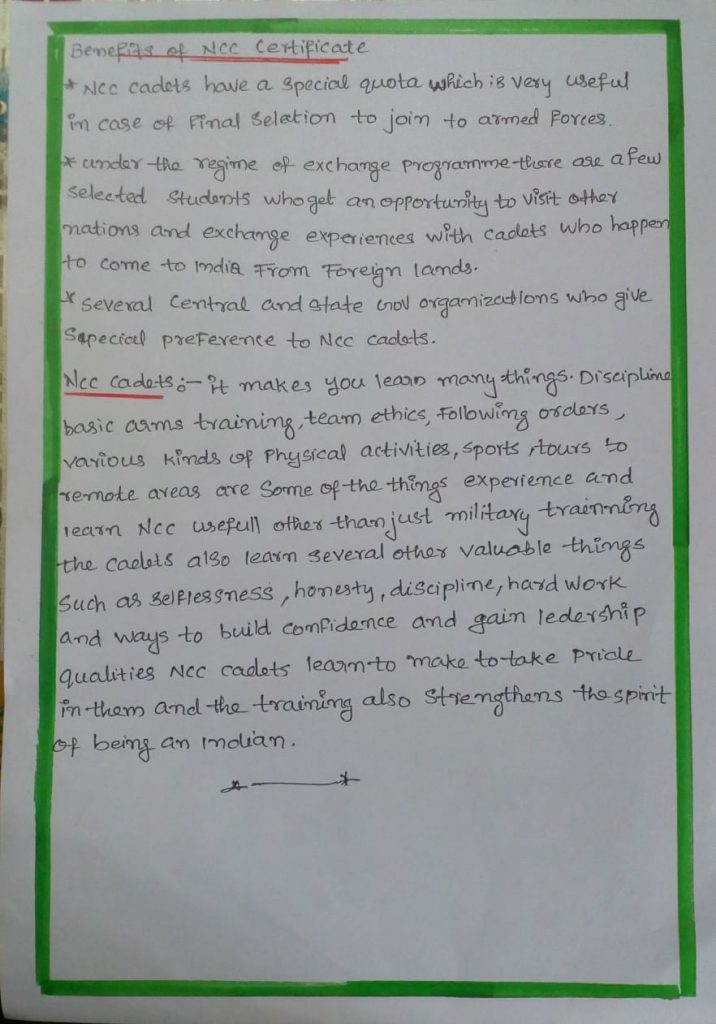 Benefits of NCC Certificate
* NCC cadets have a special quota which is very useful
in case of Final Seletion to join to armed Forces.
* under the regime of exchange programme there are a few
selected students who get an opportunity to visit other
nations and exchange experiences with cadets who happen
to come to India From Foreign lands.
* several Central and state Gov organizations who give
Sapecial preference to Ncc cadets.
Ncc cadets:- it makes you learn many things. Discipline
basic arms training, team ethics, Following orders,
various kinds of Physical activities, sports, tours to
remote areas are Some of the things experience and
learn Ncc usefull other than just military trainning
the cadets also learn several other valuable things
Such as selflessness, honesty, discipline, hard work
and ways to build confidence and gain ledership
qualities Ncc cadets learn to make to take Pride
in them and the training also Strengthens the spirit
of being an Indian.